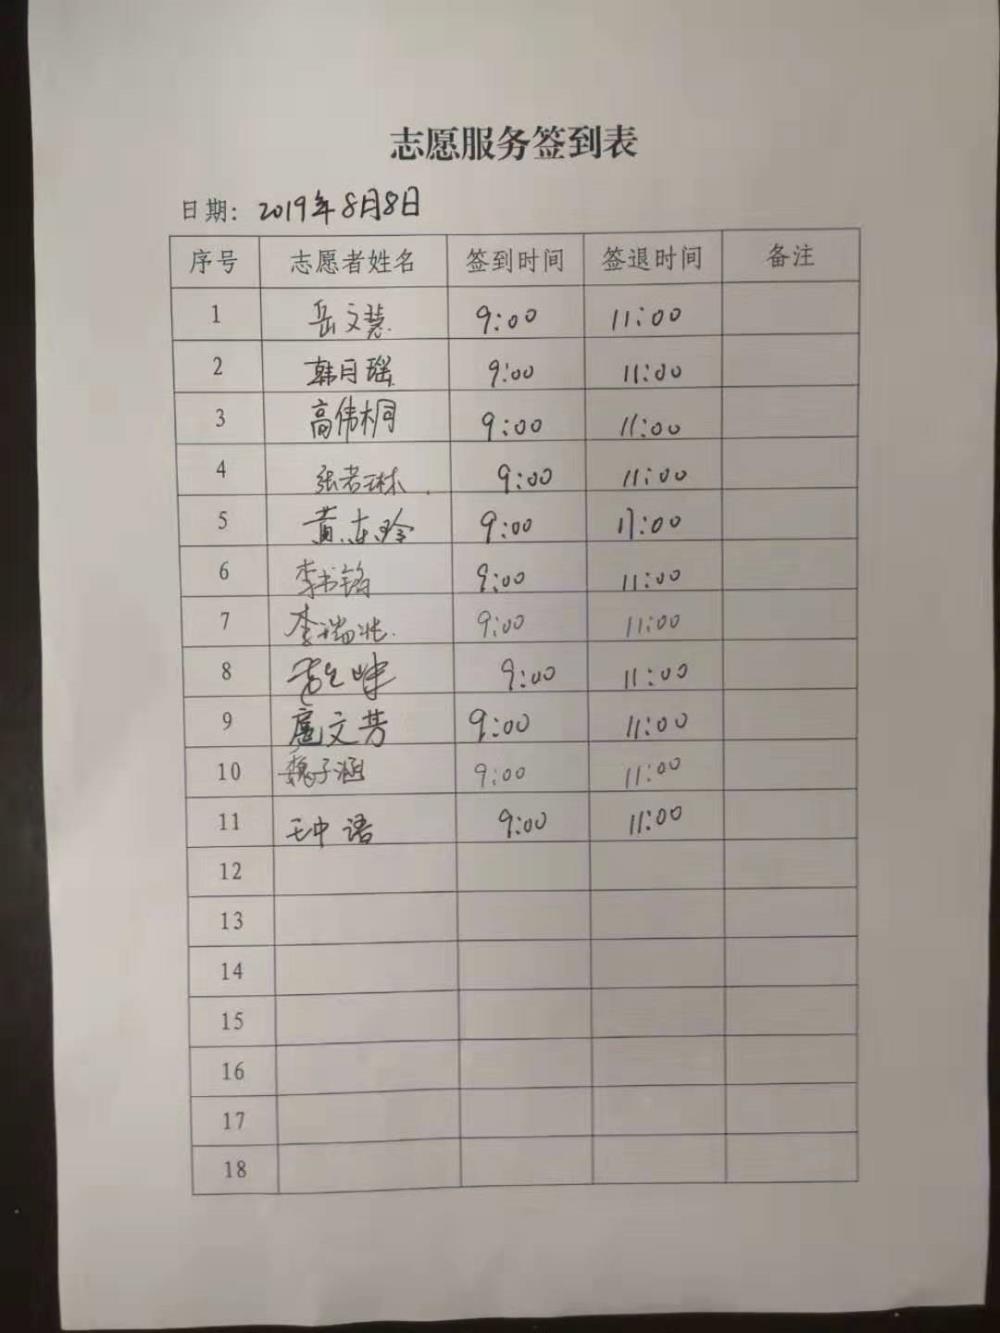 志愿服务签到表
日期: 2019年8月8日
序号 志愿者姓名 签到时间 签退时间 备注
1 岳文慧 9:00 11:00
2 韩月瑶 9:00 11:00
3 高伟桐 9:00 11:00
4 张若琳 9:00 11:00
5 黄东玲 9:00 11:00
6 李书铭 9:00 11:00
7 李瑞兆 9:00 11:00
8 9:00 11:00
9 扈文芳 9:00 11:00
10 魏子涵 9:00 11:00
11 王中语 9:00 11:00
12
13
14
15
16
17
18